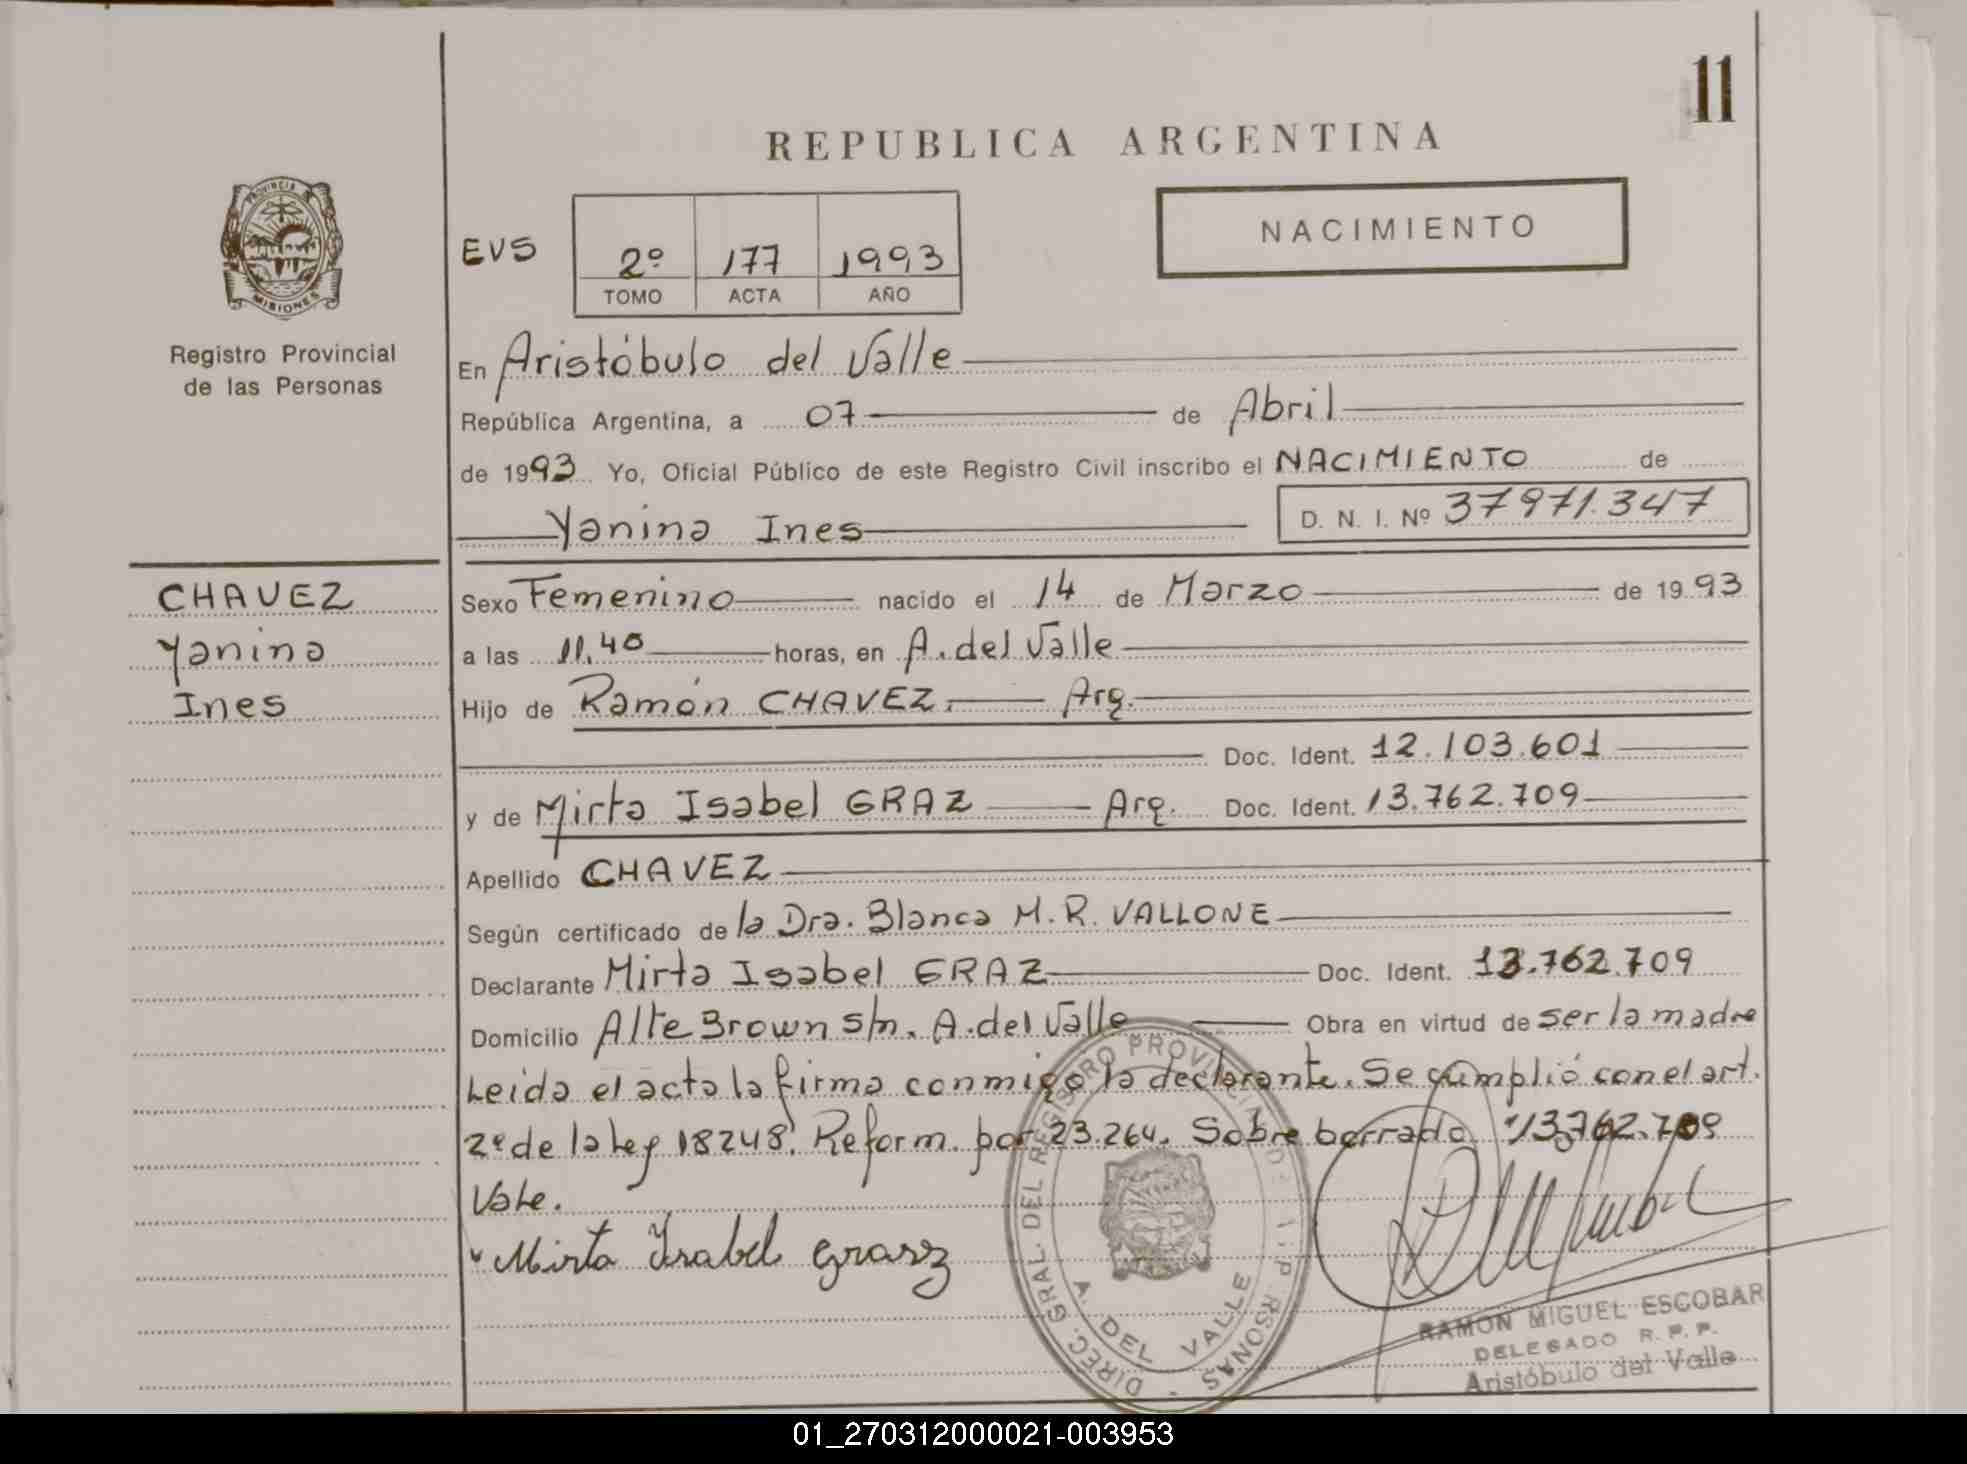 11
REPUBLICA ARGENTINA
NACIMIENTO
EVS
2º 177 1993
TOMO ACTA AÑO
PROVINCIA DE MISIONES
Registro Provincial
de las Personas
En Aristóbulo del Valle
República Argentina, a 07 de Abril
de 1993 Yo, Oficial Público de este Registro Civil inscribo el NACIMIENTO de
Yanina Ines D. N. I. Nº 37971.347
CHAVEZ
Yanina
Ines
Sexo Femenino nacido el 14 de Marzo de 1993
a las 11.40 horas, en A. del Valle
Hijo de Ramón CHAVEZ. Arg.
Doc. Ident. 12.103.601
y de Mirta Isabel GRAZ Arg. Doc. Ident. 13.762.709
Apellido CHAVEZ
Según certificado de la Dra. Blanca M. R. VALLONE
Declarante Mirta Isabel GRAZ Doc. Ident. 13.762.709
Domicilio Alte Brown s/n. A. del Valle Obra en virtud de ser la madre
Leida el acta la firma conmigo la declarante. Se cumplió con el art.
2º de la Ley 18248. Reform. por 23.264. Sobre borrado 13.762.709
Vale.
Mirta Isabel Grasz
DIREC. GRAL. DEL REGISTRO PROVINCIAL DE PERSONAS
A. DEL VALLE
RAMON MIGUEL ESCOBAR
DELEGADO R. P. P.
Aristóbulo del Valle
01_270312000021-003953